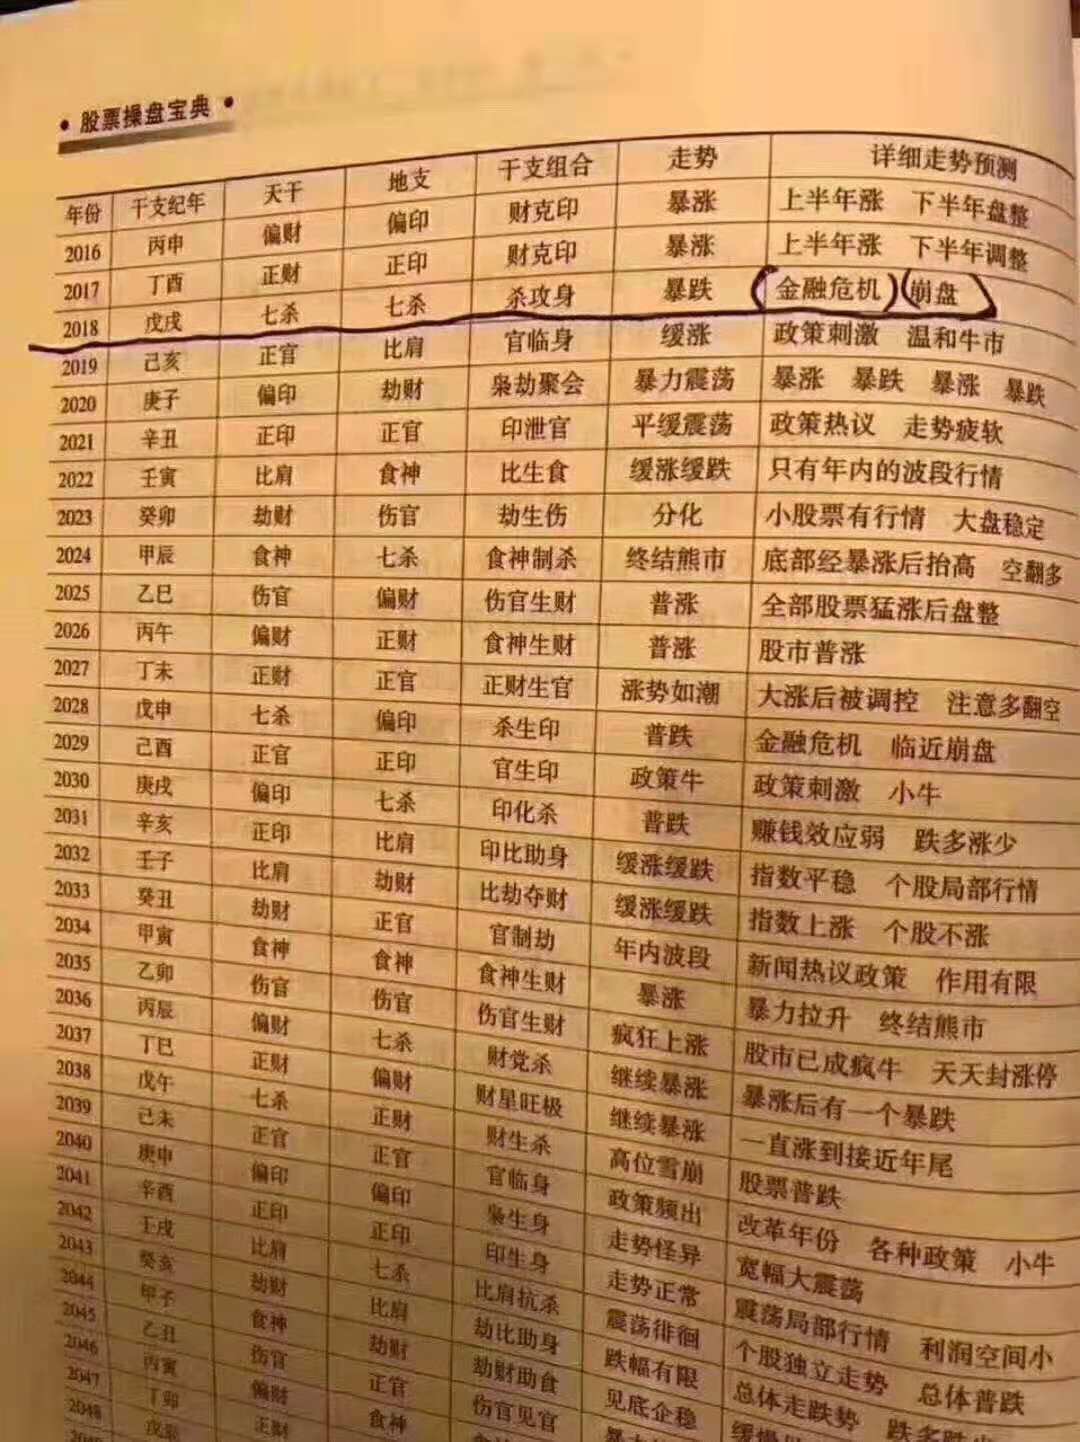 股票操盘宝典
年份 干支纪年 天干 地支 干支组合 走势 详细走势预测
2016 丙申 偏财 偏印 财克印 暴涨 上半年涨 下半年盘整
2017 丁酉 正财 正印 财克印 暴涨 上半年涨 下半年调整
2018 戊戌 七杀 七杀 杀攻身 暴跌 金融危机 崩盘
2019 己亥 正官 比肩 官临身 缓涨 政策刺激 温和牛市
2020 庚子 偏印 劫财 枭劫聚会 暴力震荡 暴涨 暴跌 暴涨 暴跌
2021 辛丑 正印 正官 印泄官 平缓震荡 政策热议 走势疲软
2022 壬寅 比肩 食神 比生食 缓涨缓跌 只有年内的波段行情
2023 癸卯 劫财 伤官 劫生伤 分化 小股票有行情 大盘稳定
2024 甲辰 食神 七杀 食神制杀 终结熊市 底部经暴涨后抬高 空翻多
2025 乙巳 伤官 偏财 伤官生财 普涨 全部股票猛涨后盘整
2026 丙午 偏财 正财 食神生财 普涨 股市普涨
2027 丁未 正财 正官 正财生官 涨势如潮 大涨后被调控 注意多翻空
2028 戊申 七杀 偏印 杀生印 普跌 金融危机 临近崩盘
2029 己酉 正官 正印 官生印 政策牛 政策刺激 小牛
2030 庚戌 偏印 七杀 印化杀 普跌 赚钱效应弱 跌多涨少
2031 辛亥 正印 比肩 印比助身 缓涨缓跌 指数平稳 个股局部行情
2032 壬子 比肩 劫财 比劫夺财 缓涨缓跌 指数上涨 个股不涨
2033 癸丑 劫财 正官 官制劫 年内波段 新闻热议政策 作用有限
2034 甲寅 食神 食神 食神生财 暴涨 暴力拉升 终结熊市
2035 乙卯 伤官 伤官 伤官生财 疯狂上涨 股市已成疯牛 天天封涨停
2036 丙辰 偏财 七杀 财党杀 继续暴涨 暴涨后有一个暴跌
2037 丁巳 正财 偏财 财星旺极 继续暴涨 一直涨到接近年尾
2038 戊午 七杀 正财 财生杀 高位雪崩 股票普跌
2039 己未 正官 正官 官临身 政策频出 改革年份 各种政策 小牛
2040 庚申 偏印 偏印 枭生身 走势怪异 宽幅大震荡
2041 辛酉 正印 正印 印生身 走势正常 震荡局部行情 利润空间小
2042 壬戌 比肩 七杀 比肩抗杀 震荡徘徊 个股独立走势 总体普跌
2043 癸亥 劫财 比肩 劫比助身 跌幅有限 总体走跌势
2044 甲子 食神 劫财 劫财助食 见底企稳
2045 乙丑 伤官 正官 伤官见官
2046 丙寅 偏财 食神
2047 丁卯 正财
2048 戊辰